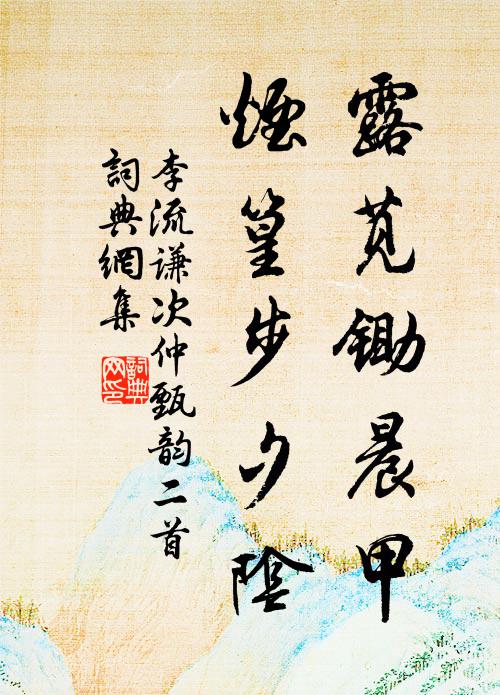 露苋鋤晨甲
煙篁步夕陰
李流谦次仲甄韵二首
詞典網集
詞典網印